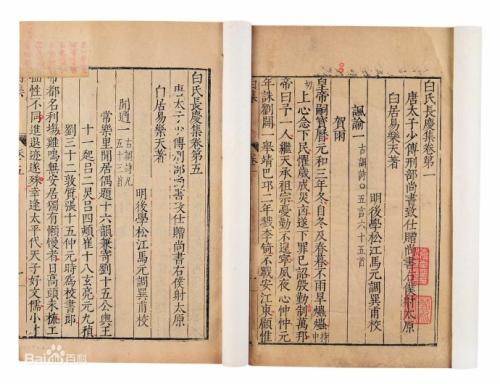 白氏長慶集卷第一
唐太子少傅刑部尚書致仕贈尚書右僕射太原
白居易樂天著
明後學松江馬元調巽甫校
諷諭一 古調詩 五言 六十五首
賀雨
皇帝嗣寶曆元和三年冬自冬及春暮不雨旱爞爞持中
切上心念下民懼歲成災凶遂下罪己詔殷勤制萬邦
帝曰予一人繼天承祖宗憂勤不遑寧夙夜心忡忡元
年誅劉闢一舉靖巴邛二年戮李錡不戰安江東顧惟
白氏長慶集卷第五
唐太子少傅刑部尚書致仕贈尚書右僕射太原
白居易樂天著
明後學松江馬元調巽甫校
閒適一 古調詩凡五十三首
常樂里閒居偶題十六韻兼寄劉十五公輿王
十一起呂二炅呂四熲崔十八玄亮元九稹
劉三十二敦質張十五仲元時爲校書郎
帝都名利塲雞鳴無安居獨有懶慢者日高頭未梳工
拙性不同進退迹遂殊幸逢太平代天子好文儒小才
卷五
Bai百科